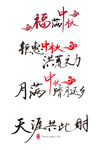 福满中秋
钜惠中秋
洪荒之力
月满中秋
天涯共此时